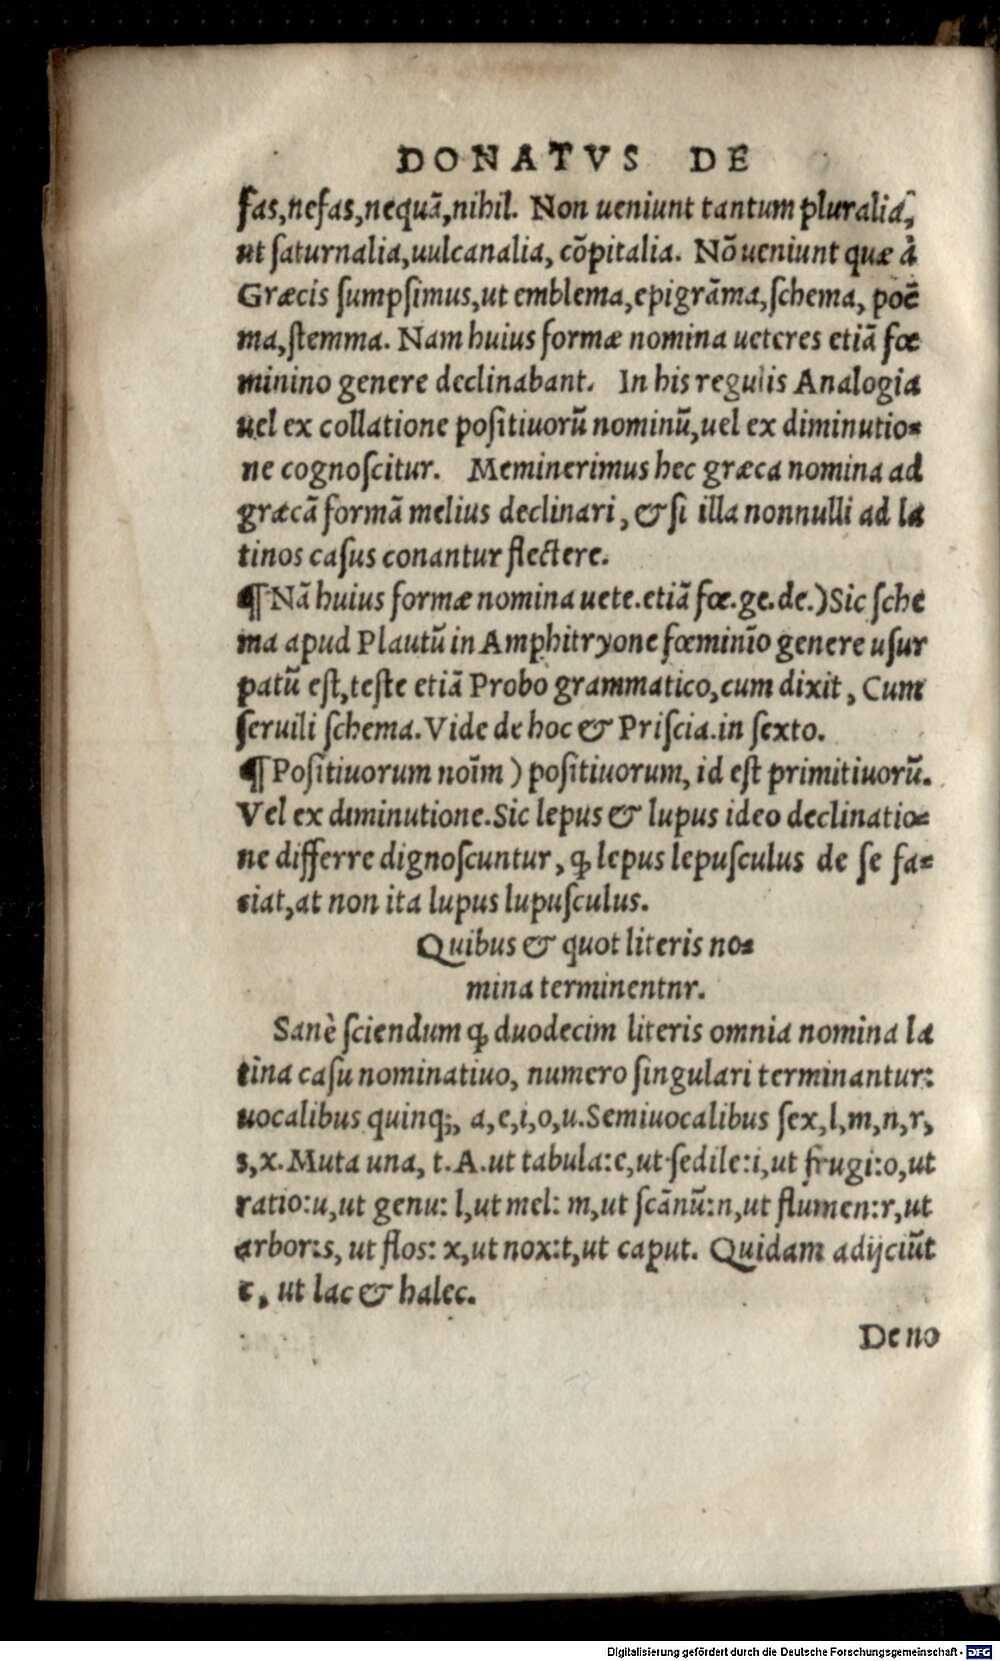 DONATVS DE
fas,nefas,nequã,nihil. Non ueniunt tantum pluralia,
ut ſaturnalia,uulcanalia, cõpitalia. Nõ ueniunt quæ à
Græcis ſumpſimus,ut emblema,epigrãma,ſchema, poẽ
ma,ſtemma. Nam huius formæ nomina ueteres etiã fœ
minino genere declinabant. In his regulis Analogia
uel ex collatione poſitiuorũ nominũ,uel ex diminutio=
ne cognoſcitur. Meminerimus hec græca nomina ad
græcã formã melius declinari, & ſi illa nonnulli ad la
tinos caſus conantur flectere.
¶ Nã huius formæ nomina uete.etiã fœ.ge.de.) Sic ſche
ma apud Plautũ in Amphitryone fœminĩo genere uſur
patũ eſt,teſte etiã Probo grammatico,cum dixit, Cum
ſeruili ſchema. Vide de hoc & Priſcia.in ſexto.
¶ Poſitiuorum noĩm ) poſitiuorum, id eſt primitiuorũ.
Vel ex diminutione. Sic lepus & lupus ideo declinatio=
ne differre dignoſcuntur, ꝙ lepus lepuſculus de ſe fa=
ciat,at non ita lupus lupuſculus.
Quibus & quot literis no=
mina terminentnr.
Sanè ſciendum ꝙ duodecim literis omnia nomina la
tina caſu nominatiuo, numero ſingulari terminantur:
uocalibus quinq;, a,e,i,o,u. Semiuocalibus ſex,l,m,n,r,
s,x. Muta una, t. A.ut tabula:e,ut ſedile:i,ut frugi:o,ut
ratio:u,ut genu: l,ut mel: m,ut ſcãnũ:n,ut flumen:r,ut
arbor:s, ut flos: x,ut nox:t,ut caput. Quidam adijciũt
c, ut lac & halec.
De no
Digitalisierung gefördert durch die Deutsche Forschungsgemeinschaft - DFG